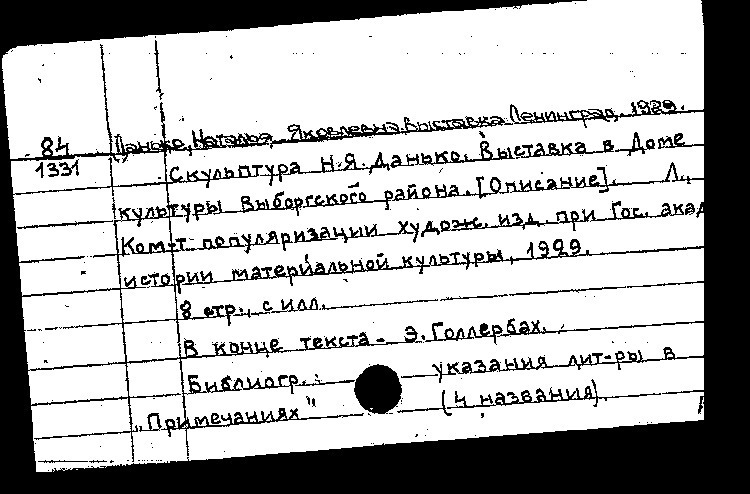 84
1331
Данько, Наталья Яковлевна. Выставка Ленинград. 1929.
Скульптура Н.Я. Данько. Выставка в Доме
культуры Выборгского района. [Описание]. Л.,
Ком-т популяризации худож. изд. при Гос. акад
истории материальной культуры, 1929.
8 стр., с илл.
В конце текста - Э. Голлербах.
Библиогр.: указания лит-ры в
"Примечаниях" (4 названия).